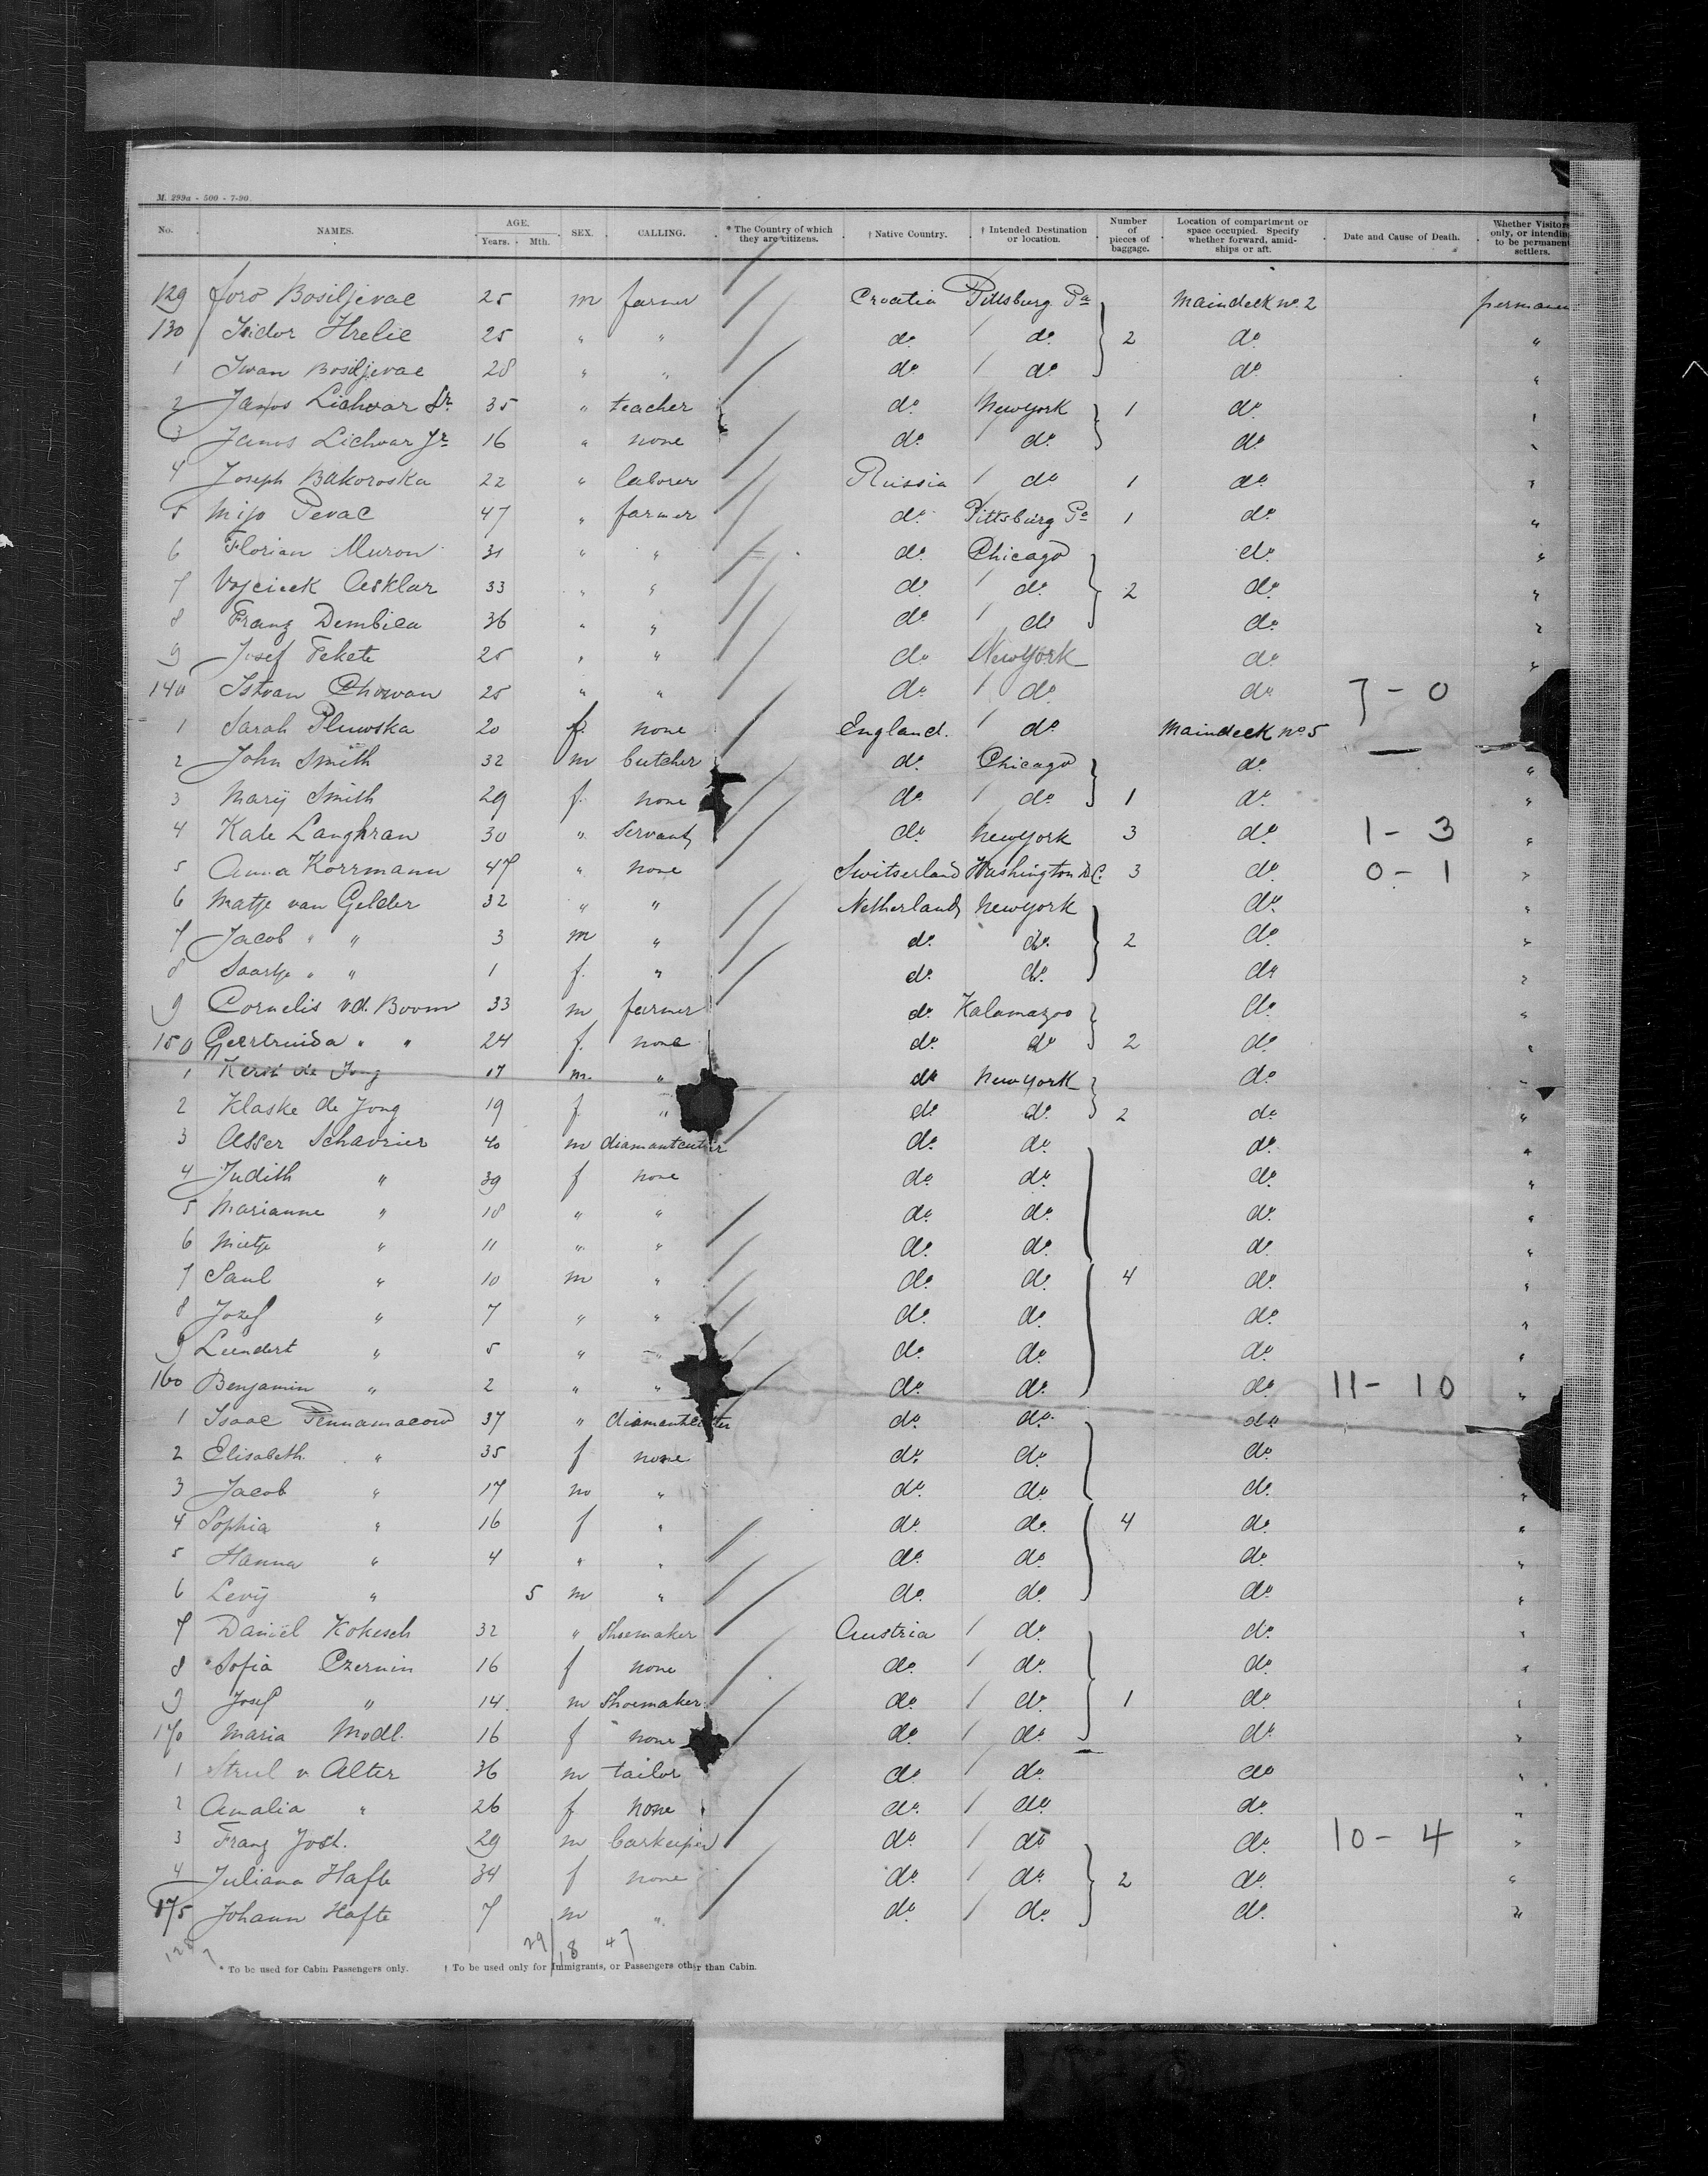 M. 299a - 500 - 7-90
No. NAMES. AGE. Years. Mth. SEX. CALLING. * The Country of which they are citizens. † Native Country. † Intended Destination or location. Number of pieces of baggage. Location of compartment or space occupied. Specify whether forward, amidships or aft. Date and Cause of Death. Whether Visitors only, or intending to be permanent settlers.
129 Joro Bosiljevac 25 m farmer Croatia Pittsburg Pa Maindeck no. 2 permanen
130 Isidor Hrelic 25 " " do. do. 2 do. "
1 Iwan Bosiljevac 28 " " do. do. do. "
2 Janos Lichvar Sr. 35 " teacher do. New York 1 do. "
3 Janos Lichvar Jr. 16 " none do. do. do. "
4 Joseph Bakoroska 22 " laborer Russia do. 1 do. "
5 Mijo Pevac 47 " farmer do. Pittsburg Pa 1 do. "
6 Florian Muron 31 " " do. Chicago do. "
7 Vojcieck Asklar 33 " " do. do. 2 do. "
8 Franz Dembica 36 " " do. do. do. "
9 Josef Fekete 25 " " do. New York do. "
140 Istvan Chowan 25 " " do. do. do. 7 - 0
1 Sarah Pluwska 20 f. none England. do. Maindeck no 5
2 John Smith 32 m butcher do. Chicago do. "
3 Marÿ Smith 29 f. none do. do. 1 do. "
4 Kate Langhran 30 " Servant do. New York 3 do. 1 - 3 "
5 Anna Korrmann 47 " none Switserland Washington D.C. 3 do. 0 - 1 "
6 Matje van Gelder 32 " " Netherlands New York do. "
7 Jacob " " 3 m " do. do. 2 do. "
8 Saartje " " 1 f. " do. do. do. "
9 Cornelis v.d. Boom 33 m farmer do. Kalamazoo do. "
150 Geertruida " " 24 f. none do. do. 2 do. "
1 de Jong 17 m. " do. New York do. "
2 Klaske de Jong 19 f. " do. do. 2 do. "
3 Asser Schavrier 40 m diamantcutter do. do. do. "
4 Judith " 39 f none do. do. do. "
5 Marianne " 18 " " do. do. do. "
6 Mietje " 11 " " do. do. do. "
7 Saul " 10 m " do. do. 4 do. "
8 Jozef " 7 " " do. do. do. "
9 Leendert " 5 " " do. do. do. "
160 Benjamin " 2 " " do. do. do. 11 - 10 "
1 Isaac Pennamacow 37 " diamantcutter do. do. do.
2 Elisabeth " 35 f none do. do. do.
3 Jacob " 17 m " do. do. do. "
4 Sophia " 16 f " do. do. 4 do. "
5 Hanna " 4 " " do. do. do. "
6 Levÿ " 5 m " do. do. do. "
7 Daniël Kokesch 32 " Shoemaker Austria do. do. "
8 Sofia Czernin 16 f none do. do. do. "
9 Josef " 14 m Shoemaker do. do. 1 do. "
170 Maria Modl. 16 f none do. do. do. "
1 Strul v. Alter 36 m tailor do. do. do. "
2 Amalia " 26 f none do. do. do. "
3 Franz Jost. 29 m barkeeper do. do. do. 10 - 4 "
4 Juliana Hafte 34 f none do. do. 2 do. "
175 Johann Hafte 7 m " do. do. do. "
29 18 47
* To be used for Cabin Passengers only. † To be used only for Immigrants, or Passengers other than Cabin.